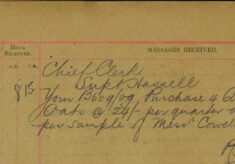 HOUR RECEIVED.
MESSAGES RECEIVED.
A.M. P.M.
Chief Clerk
8 Supt Hassell
Your B609/09 Purchase 4
Oats @ 24/- per quarter
per sample of Messrs